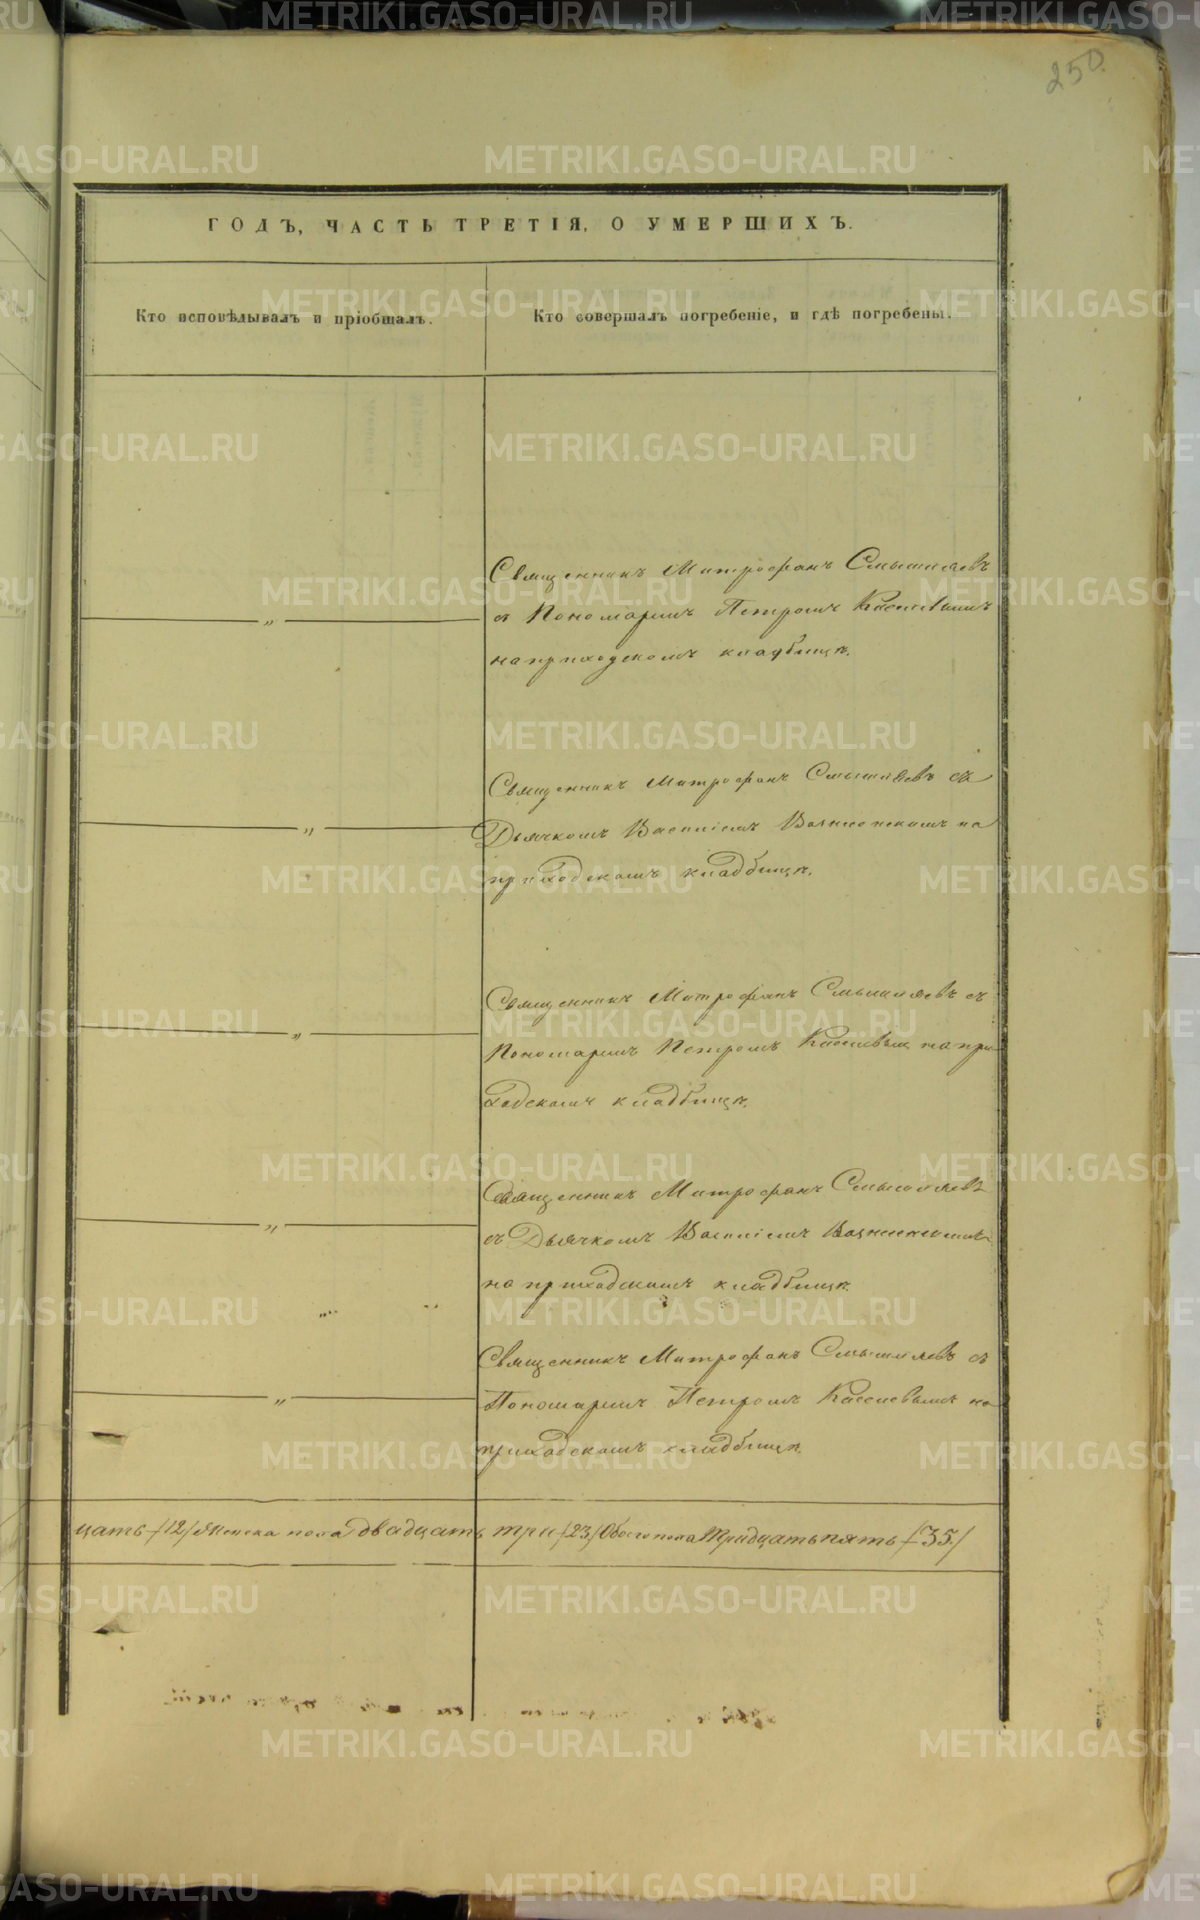 250.
ГОДЪ, ЧАСТЬ ТРЕТІЯ, О УМЕРШИХЪ.
Кто исповѣдывалъ и пріобщалъ.
Кто совершалъ погребеніе, и гдѣ погребены.
Священникъ Митрофанъ Смышляевъ
съ Пономаремъ Петромъ
на приходскомъ кладбищѣ.
Священникъ Митрофанъ Смышляевъ съ
Дьячкомъ Василіемъ Вознесенскимъ на
приходскомъ кладбищѣ.
Священникъ Митрофанъ Смышляевъ съ
Пономаремъ Петромъ на при
ходскомъ кладбищѣ.
Священникъ Митрофанъ Смышляевъ
съ Дьячкомъ Василіемъ Вознесенскимъ
на приходскомъ кладбищѣ.
Священникъ Митрофанъ Смышляевъ съ
Пономаремъ Петромъ на
приходскомъ кладбищѣ.
цать /12/ Женска пола двадцать три /23/ Обоего пола Тридцать пять /35./
METRIKI.GASO-URAL.RU